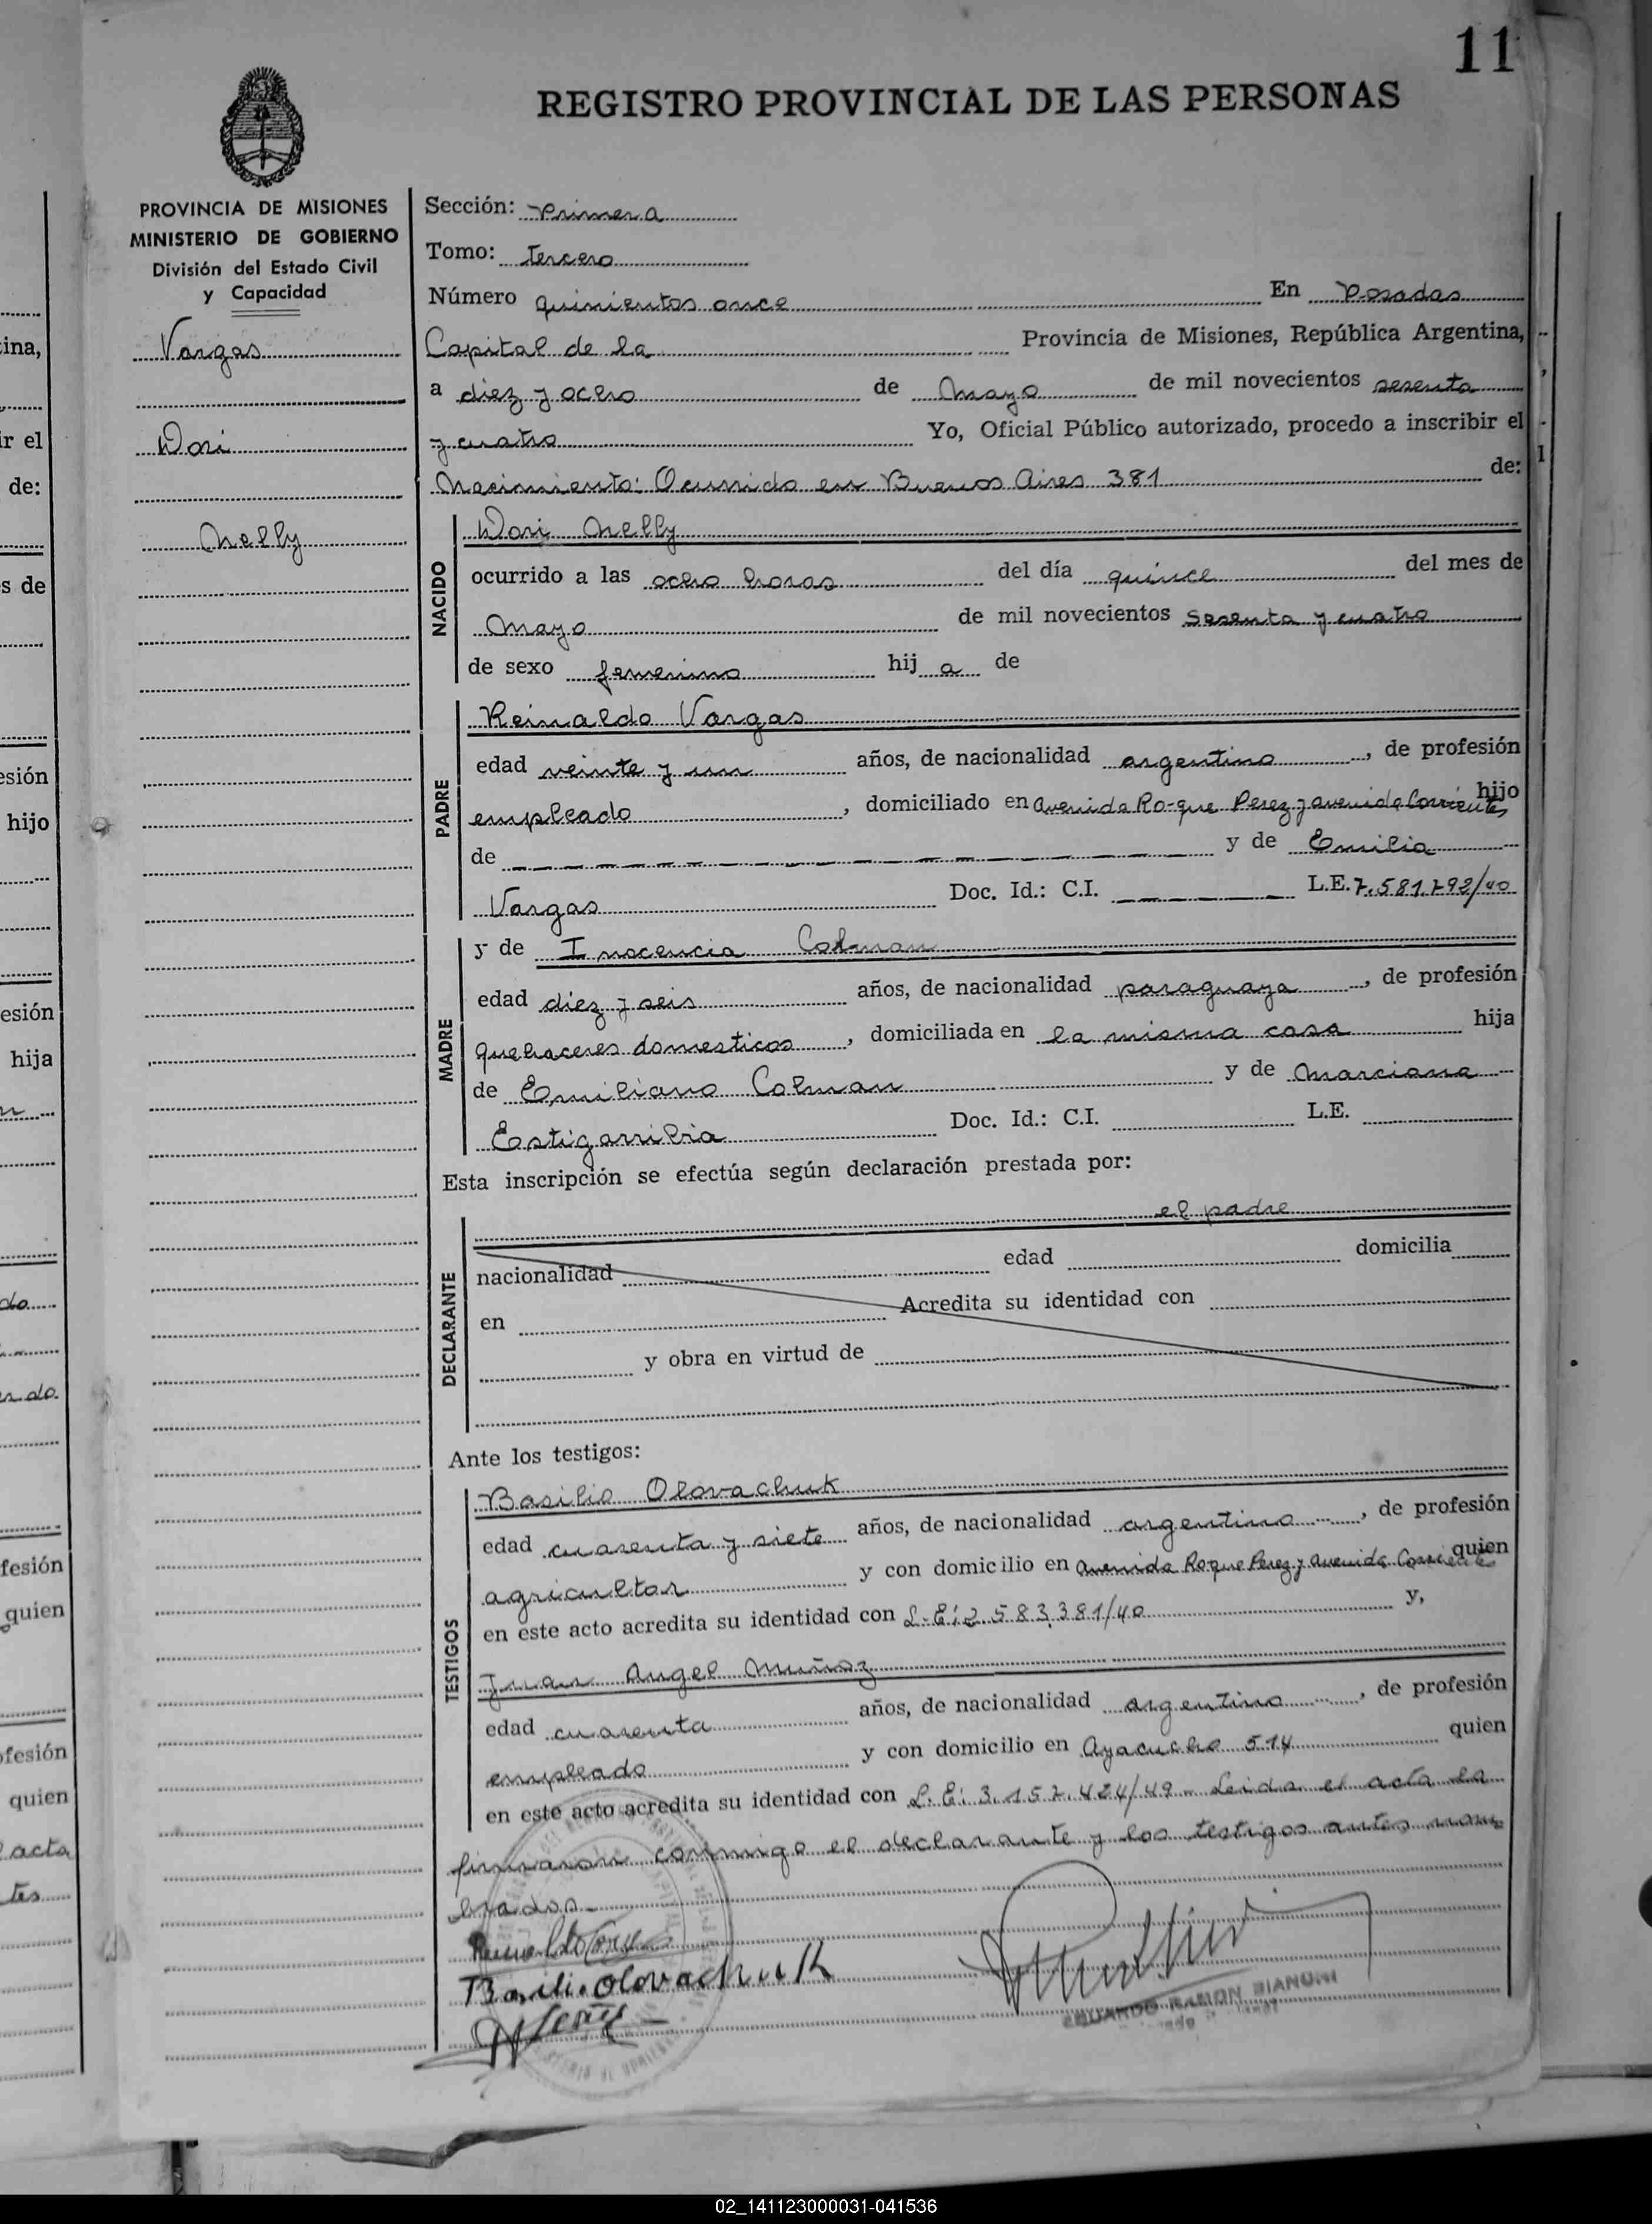 11
REGISTRO PROVINCIAL DE LAS PERSONAS
PROVINCIA DE MISIONES
MINISTERIO DE GOBIERNO
División del Estado Civil
y Capacidad
Vargas
Dori
Nelly
Sección: Primera
Tomo: tercero
Número quinientos once En Posadas
Capital de la Provincia de Misiones, República Argentina,
a diez y ocho de Mayo de mil novecientos sesenta
y cuatro Yo, Oficial Público autorizado, procedo a inscribir el
Nacimiento: Ocurrido en Buenos Aires 381 de:
NACIDO
Dori Nelly
ocurrido a las ocho horas del día quince del mes de
Mayo de mil novecientos sesenta y cuatro
de sexo femenino hij a de
PADRE
Reinaldo Vargas
edad veinte y un años, de nacionalidad argentino, de profesión
empleado, domiciliado en avenida Roque Perez y avenida Corrientes hijo
de — — — y de Emilia
Vargas Doc. Id.: C.I. — — — L.E. 7.581.792/40
MADRE
y de Inocencia Colman
edad diez y seis años, de nacionalidad paraguaya, de profesión
quehaceres domesticos, domiciliada en la misma casa hija
de Emiliano Colman y de Marciana
Estigarribia Doc. Id.: C.I. L.E.
Esta inscripción se efectúa según declaración prestada por:
DECLARANTE
el padre
nacionalidad edad domicilia
en Acredita su identidad con
y obra en virtud de
Ante los testigos:
TESTIGOS
Basilio Olovachuk
edad cuarenta y siete años, de nacionalidad argentino, de profesión
agricultor y con domicilio en avenida Roque Perez y avenida Corrientes quien
en este acto acredita su identidad con L.E: 2.583.381/40 y,
Juan Angel Muñoz
edad cuarenta años, de nacionalidad argentino, de profesión
empleado y con domicilio en Ayacucho 514 quien
en este acto acredita su identidad con L.E: 3.157.424/49 - Leida el acta la
firmaron conmigo el declarante y los testigos antes nom
brados.-
Basilio Olovachuk
EDUARDO RAMON BIANUNI
ina,
ir el
de:
s de
esión
hijo
esión
hija
do
fesión
quien
ofesión
quien
acta
tes
02_141123000031-041536